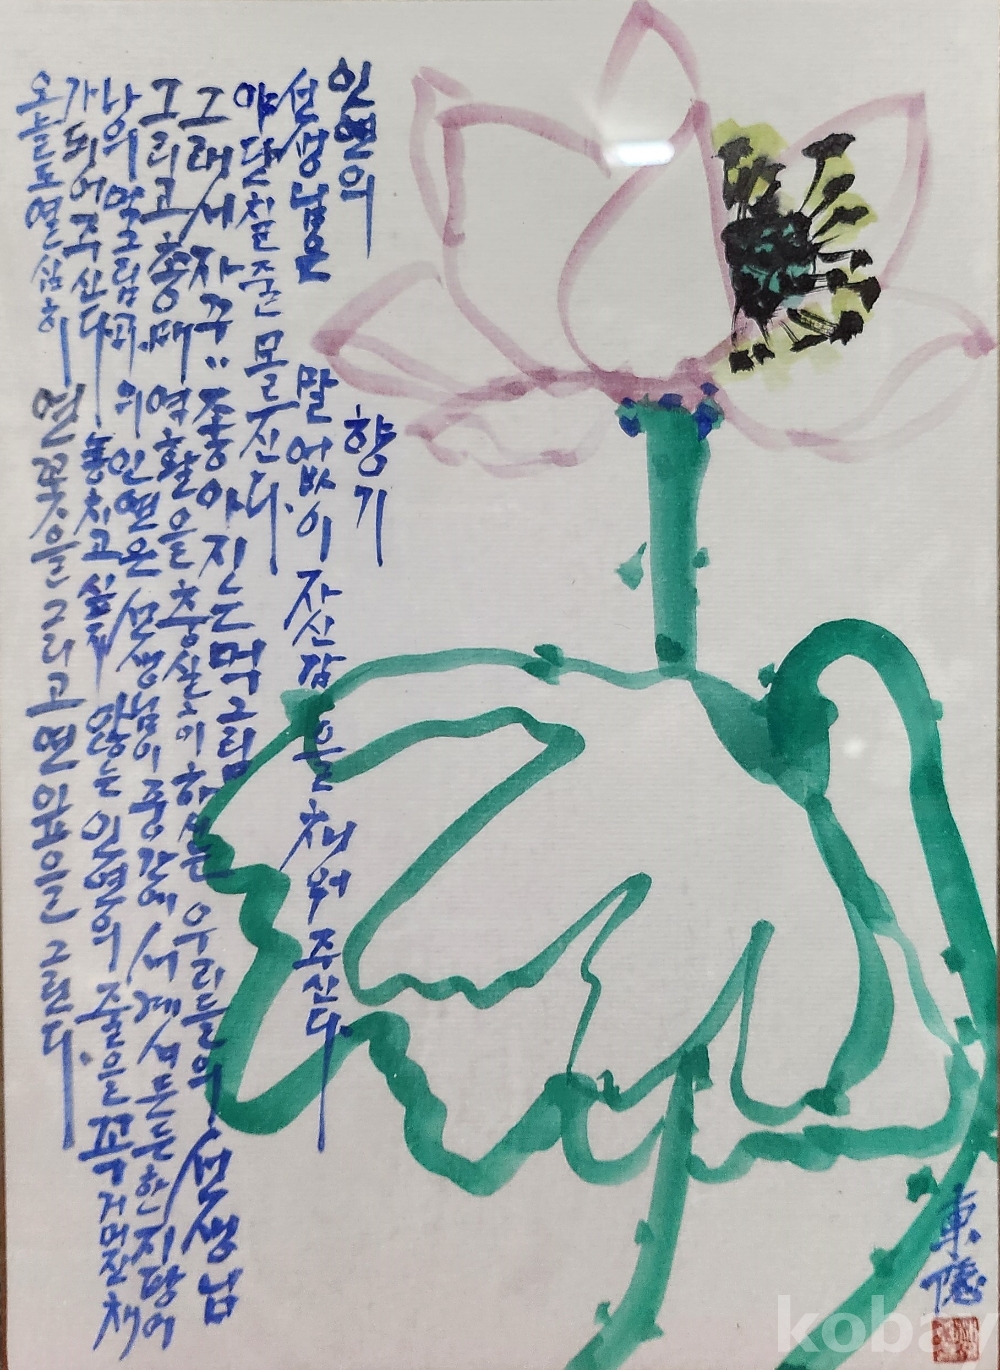 인연의 향기
선생님은 말 없이 자신감을 채워 주신다.
야단칠 줄 모르신다.
그래서 자꾸〃 좋아지는 먹그림
그리고 역활을 충실히 하시는 우리들의 선생님
먹그림과의 인연은 선생님이 중간에 서 계셔 든든한 지팡이
가 되어 주신다 놓치고 싶지 않는 인연의 줄을 꼭 거머진 채
오늘도 열심히 연꽃을 그리고 연잎을 그린다.
東
kobay